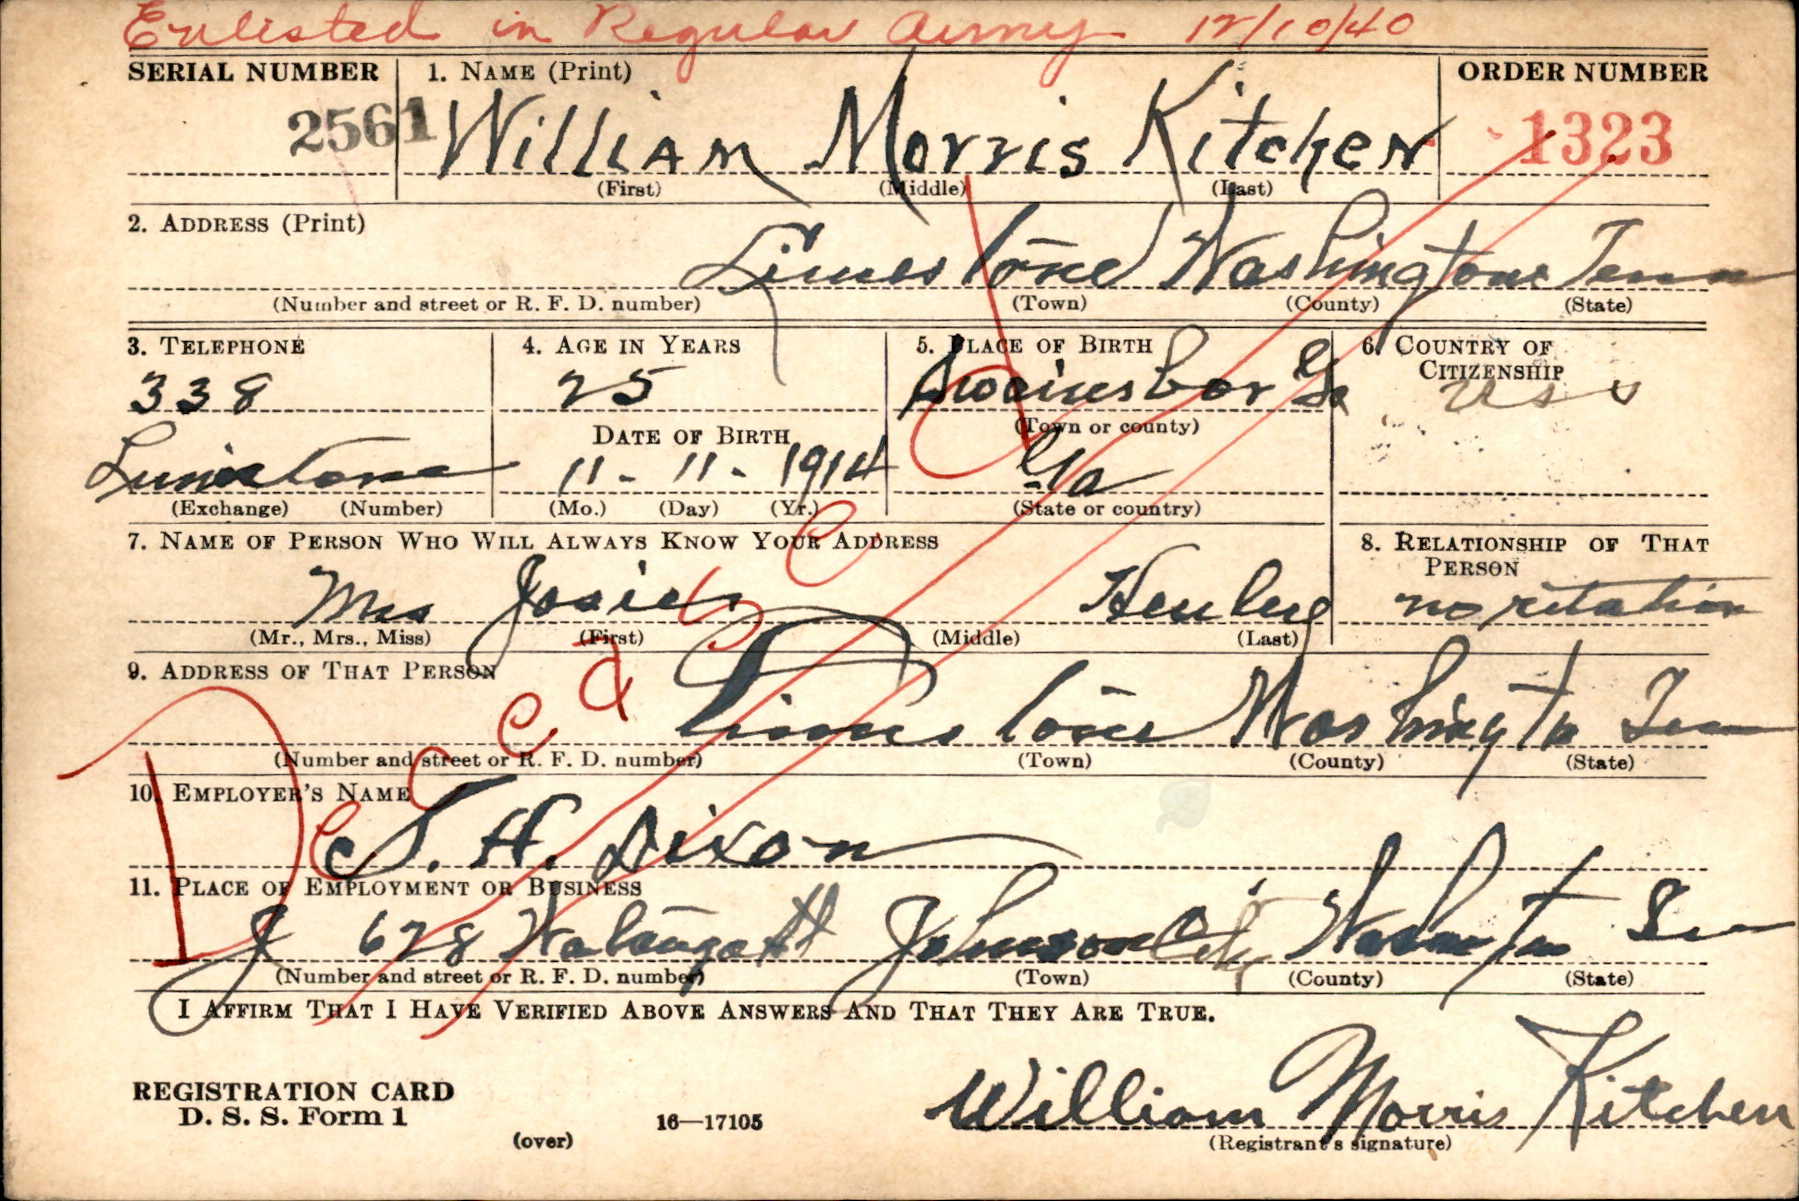 Enlisted in Regular Army 12/10/40
SERIAL NUMBER 1. NAME (Print) ORDER NUMBER
2561 William Morris Kitchen 1323
(First) (Middle) (Last)
2. ADDRESS (Print)
Limestone Washington Tenn
(Number and street or R. F. D. number) (Town) (County) (State)
3. TELEPHONE 4. AGE IN YEARS 5. PLACE OF BIRTH 6. COUNTRY OF CITIZENSHIP
338 25 Swainesbor Ga
DATE OF BIRTH (Town or county)
Limestone 11 - 11 - 1914 Ga
(Exchange) (Number) (Mo.) (Day) (Yr.) (State or country)
7. NAME OF PERSON WHO WILL ALWAYS KNOW YOUR ADDRESS 8. RELATIONSHIP OF THAT PERSON
Mrs Josie no
(Mr., Mrs., Miss) (First) (Middle) (Last)
9. ADDRESS OF THAT PERSON
Limestone Washington Tenn
(Number and street or R. F. D. number) (Town) (County) (State)
Deceased
10. EMPLOYER'S NAME
H. Dixon
11. PLACE OF EMPLOYMENT OR BUSINESS
628 Watauga St Johnson City Washington Tenn
(Number and street or R. F. D. number) (Town) (County) (State)
I AFFIRM THAT I HAVE VERIFIED ABOVE ANSWERS AND THAT THEY ARE TRUE.
REGISTRATION CARD
D. S. S. Form 1 16—17105 William Morris Kitchen
(over) (Registrant's signature)